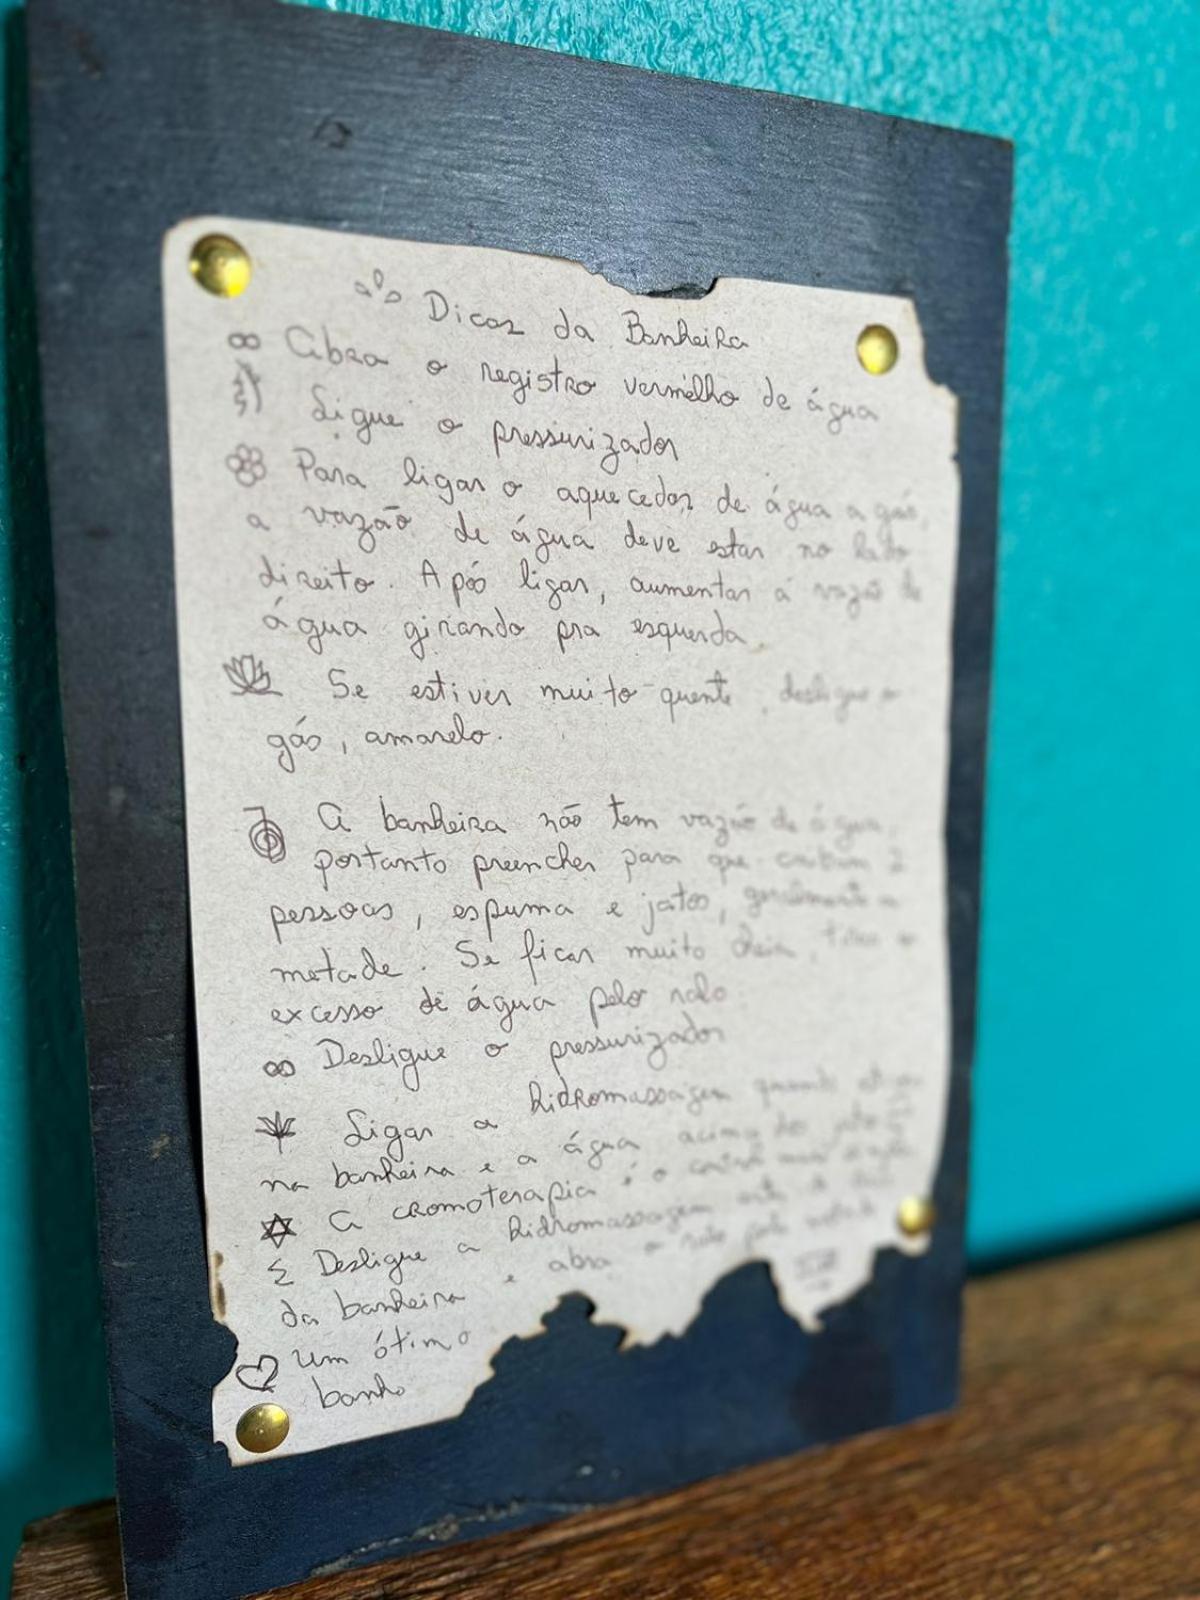 Dicas da Banheira
Abra o registro vermelho de água
Ligue o pressurizador
Para ligar o aquecedor de água a gás,
a vazão de água deve estar no lado
direito. Após ligar, aumentar a vazão de
água girando pra esquerda.
Se estiver muito quente, desligue o
gás, amarelo.
A banheira não tem vazão de água,
portanto preencher para que caibam 2
pessoas, espuma e jatos, geralmente a
metade. Se ficar muito cheia, tire o
excesso de água pelo ralo.
Desligue o pressurizador
Ligar a hidromassagem quando
na banheira e a água acima dos jatos
A cromoterapia é o
Desligue a hidromassagem antes de sair
da banheira e abra o ralo
um ótimo
banho